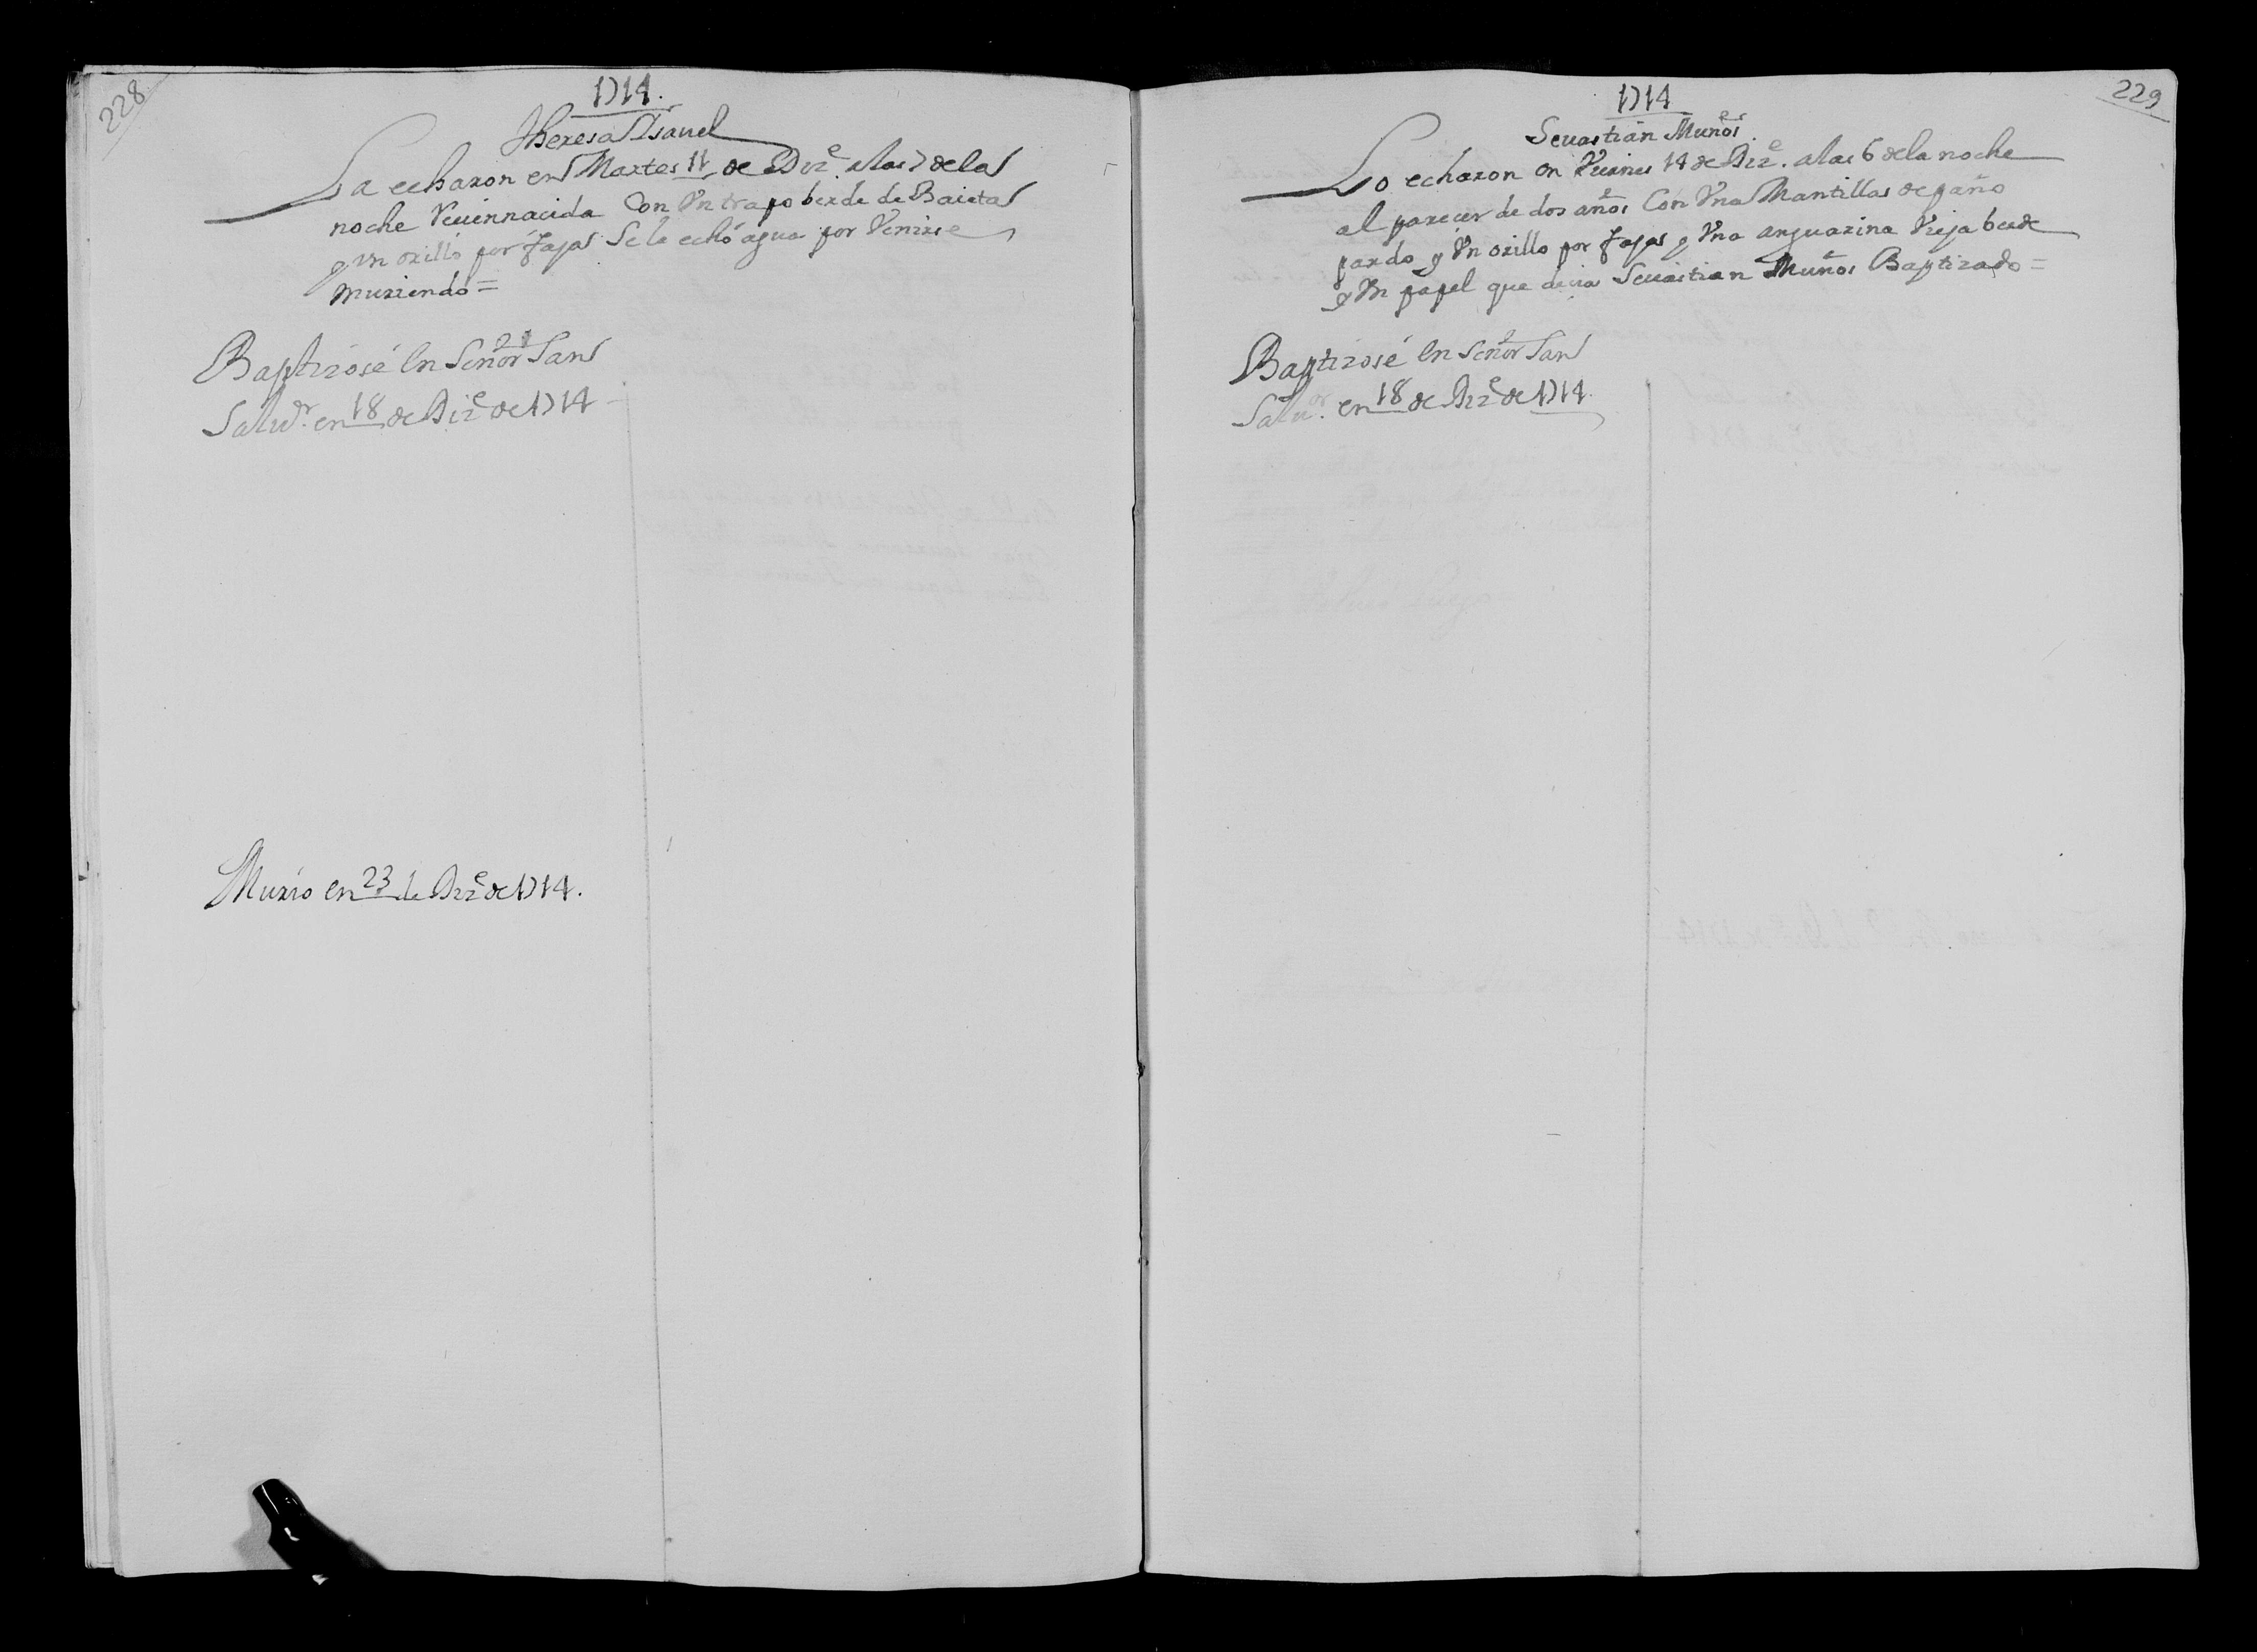 228
1714.
Theresa Isauel
La echaron en Martes 11 de Dize. a las 7 de la
noche Reuiennacida Con Vn trapo berde de Baieta
y vn orillo por fajas Se le echó agua por Venirse
muriendo =
Baptizosé En Señor San
Saluor. en 18 de Dize de 1714
Murio en 23 de Dize de 1714.
229
1714
Seuastian Muños
Lo echaron en Viernes 14 de Dize. a las 6 de la noche
al parecer de dos años Con Vna Mantillas de paño
pardo y Vn orillo por fajas y Vna anguarina Vieja berde
y Vn papel que decia Seuastian Muños Baptizado =
Baptizosé En Señor San
Saluor. en 18 de Dize de 1714.